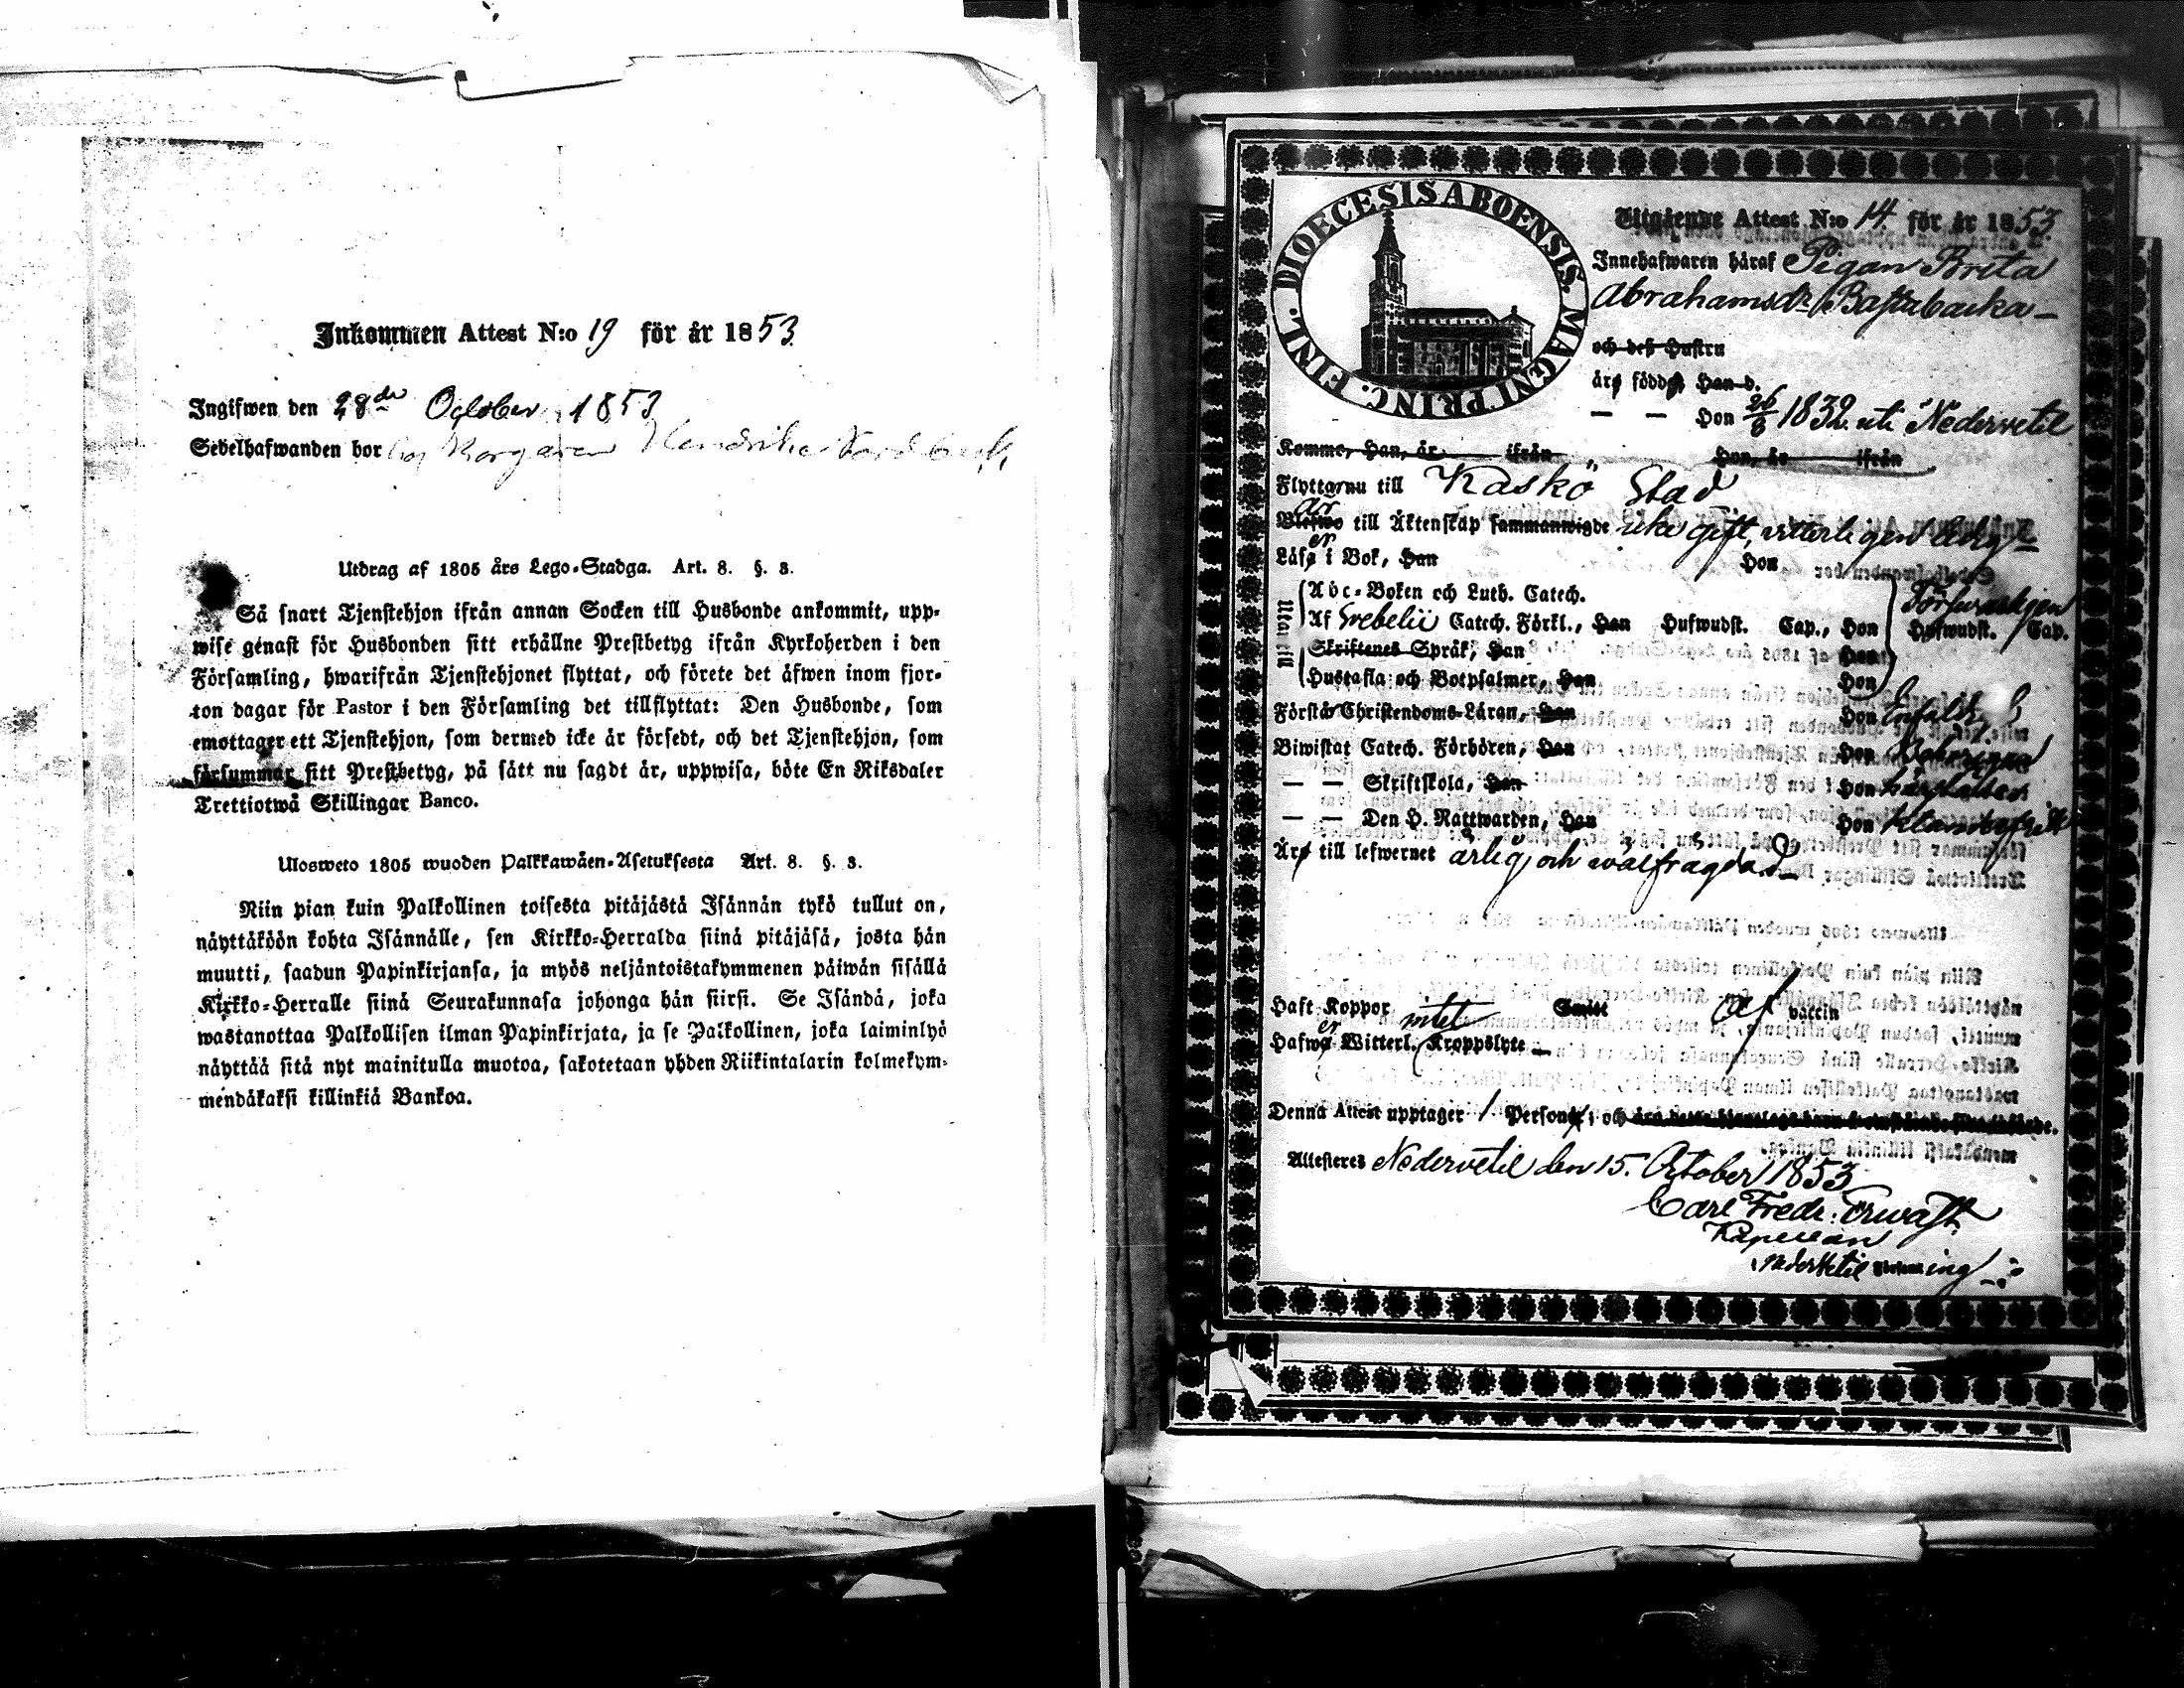 Inkommen Attest N:o 19 för år 1853
Ingifwen den 28de October 1853
Sedelhafwanden bor hos Borgaren Hendrik
Utdrag af 1805 års Lego-Stadga. Art. 8. §. 3.
Så snart Tjenstehjon ifrån annan Socken till Husbonde ankommit, upp-
wise genast för Husbonden sitt erhållne Prestbetyg ifrån Kyrkoherden i den
Församling, hwarifrån Tjenstehjonet flyttat, och förete det äfwen inom fjor-
ton dagar för Pastor i den Församling det tillflyttat: Den Husbonde, som
emottager ett Tjenstehjon, som dermed icke är försedt, och det Tjenstehjon, som
försummar sitt Prestbetyg, på sätt nu sagdt är, uppwisa, böte En Riksdaler
Trettiotwå Skillingar Banco.
Ulosweto 1805 wuoden Palkkawäen-Asetuksesta Art. 8. §. 3.
Niin pian kuin Palkollinen toisesta pitäjästä Isännän tykö tullut on,
näyttäköön kohta Isännälle, sen Kirkko-Herralda siinä pitäjäsä, josta hän
muutti, saadun Papinkirjansa, ja myös neljäntoistakymmenen päiwän sisällä
Kirkko-Herralle siinä Seurakunnasa johonga hän siirsi. Se Isändä, joka
wastanottaa Palkollisen ilman Papinkirjata, ja se Palkollinen, joka laiminlyö
näyttää sitä nyt mainitulla muotoa, sakotetaan yhden Riikintalarin kolmekym-
mendäkaksi killinkiä Bankoa.
DIOECESIS ABOENSIS. MAGNI PRINC. FINL.
Utgående Attest N:o 14 för år 1853
Innehafwaren häraf Pigan Brita
Abrahamsdr Bastubacka
och deß Hustru
äro födde, Han d.
— — Hon 26/8 1832 uti Nedervetil
Kommo, Han, år ifrån Hon, år ifrån
Flyttar nu till Kaskö Stad
är
Blefwo till Äktenskap sammanwigde icke gift, vitterligen ledig
er
Läsa i Bok, Han Hon
Utantill
Abc-Boken och Luth. Catech. Förswarligen
Af Svebelii Catech. Förkl., Han Hufwudst. Cap., Hon Hufwudst. Cap.
Skriftenes Språk, Han Hon
Hustafla och Botpsalmer, Han Hon
Förstår Christendoms-Läran, Han Hon Enfaldt.
Biwistat Catech. Förhören, Han Hon Behörigen
— — Skriftskola, Han Hon
— — Den H. Nattwarden, Han Hon
Äro till lefwernet ärlig och wälfrägdad
Haft Koppor af vaccin
er
Hafwa Witterl. Kroppslyte intet
Denna Attest upptager 1 Person, och
Attesteres Nedervetil den 15. October 1853
Carl Fredr.
Kapellan
Nedervetil